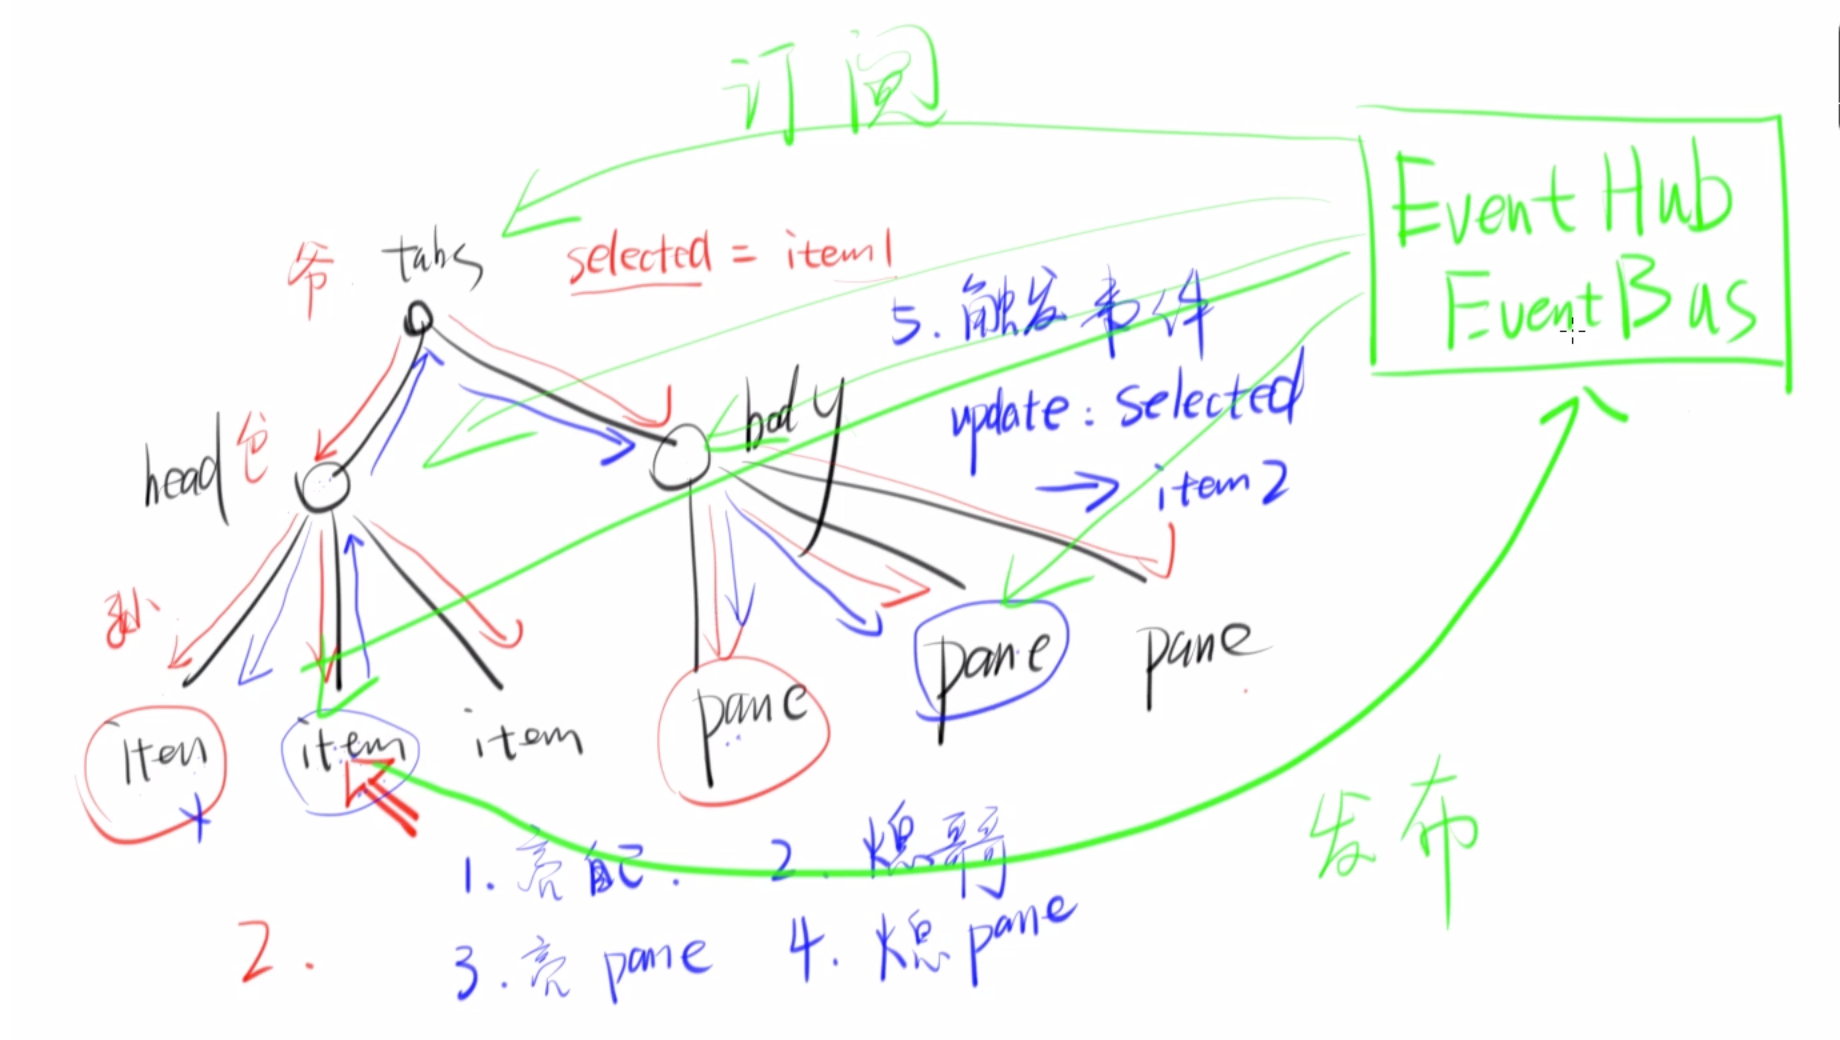 订阅
Event Hub
Event Bus
爷 tabs
selected = item1
5. 触发事件
update: selected
→ item 2
head
body
item
item
item
pane
pane
pane
1. 亮自己. 2. 熄哥哥
3. 亮 pane 4. 熄 pane
2.
发布